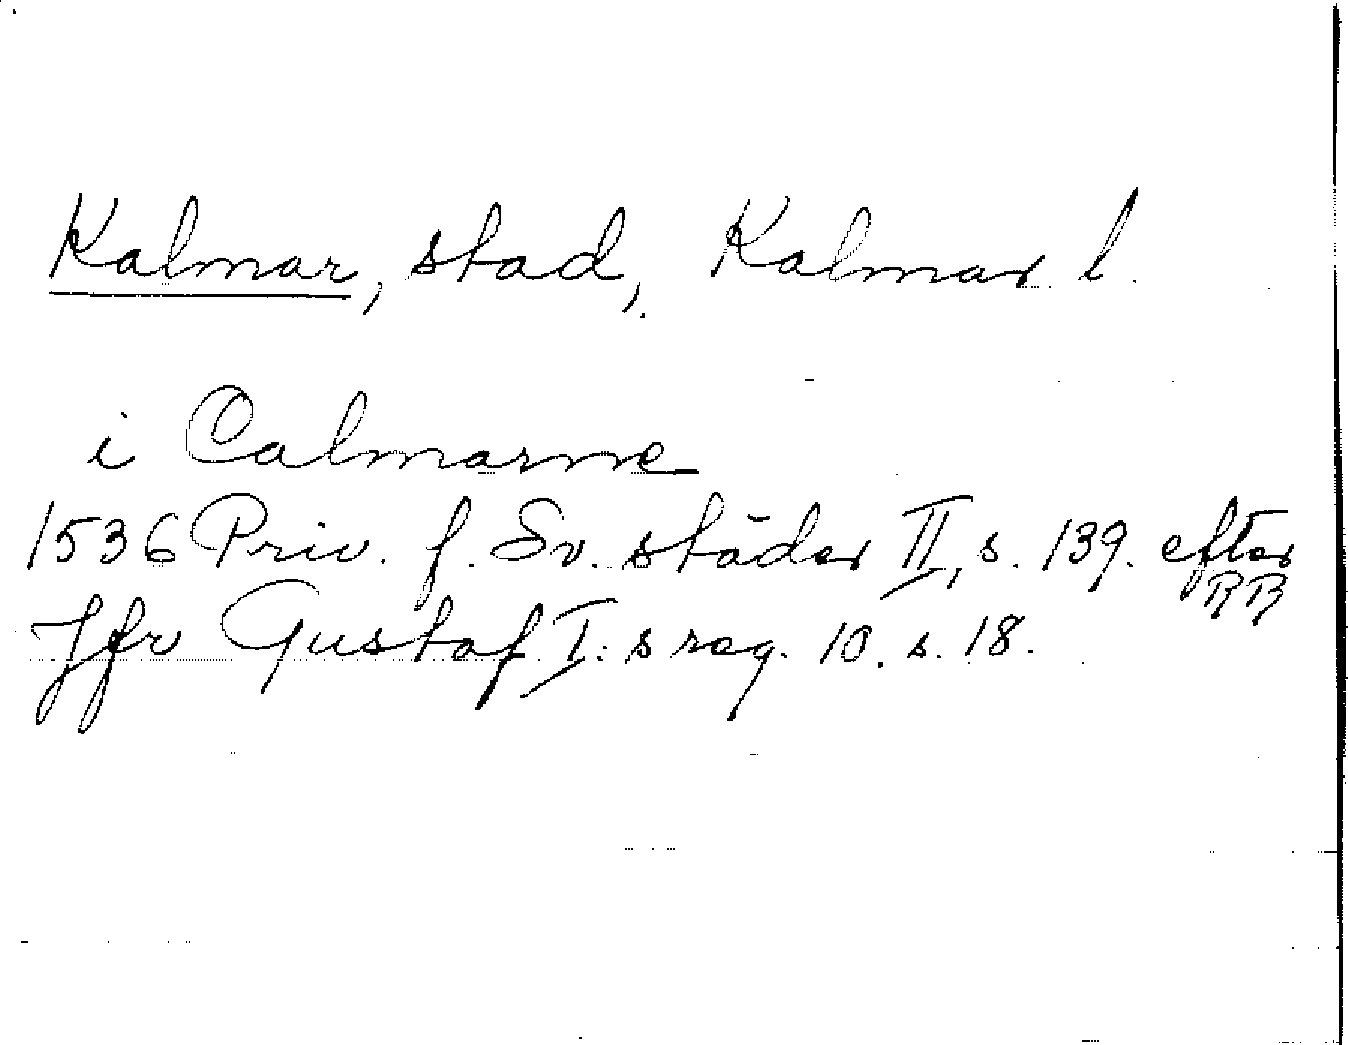 Kalmar, stad, Kalmar l.
i Calmarne
1536 Priv. f. Sv. städer II, s. 139. efter
RR
Jfr Gustaf I:s reg. 10. s. 18.